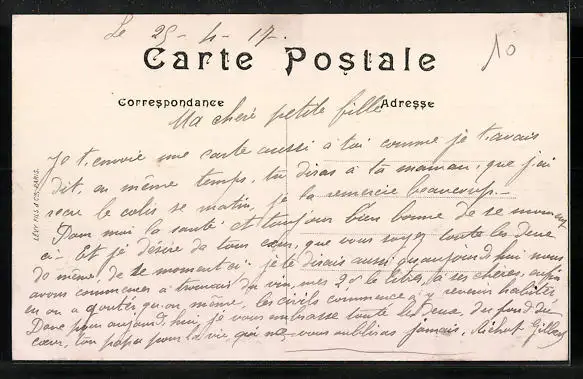 Le 25-4-17-
10
Carte Postale
Correspondance
Adresse
Ma chere petite fille
Je t.envoie une carte aussi a toi comme je t.avais
dit, en même temps, tu diras à ta maman, que j.ai
recu le colis se matin, je la remercie beaucoup-
Pour moi la santé et toujour bien bonne de se moment
ci- Et je désire de tous cœur, que vous soyez toute les deux
de même de se moment ci- je te dirais aussi qu,aujourd,hui nous
avons commencer a trouver du vin, mes 2f le litre, sa ses chere, enfin
en on a gouté, quan même, les civils commence a y revenir habiter,
Donc pour aujourd,hui je vous embrasse toute les deux, du fond du
cœur, ton papa pour la vie, qui ne vous oublieras jamais, Gilbert
LÉVY FILS & CIE, PARIS.